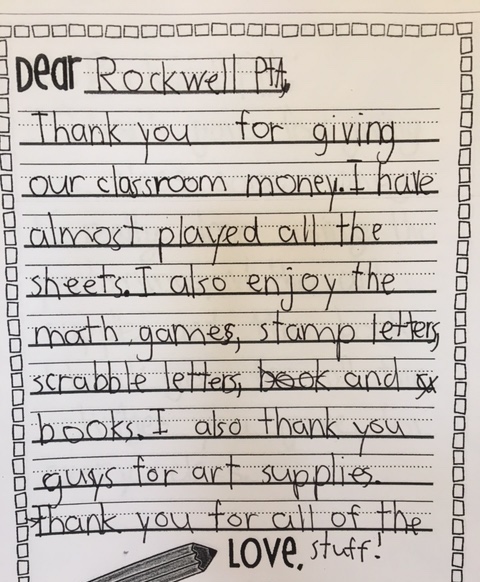 Dear Rockwell PTA,
Thank you for giving
our classroom money. I have
almost played all the
sheets. I also enjoy the
math games, stamp letters,
scrabble letters, book and
books. I also thank you
guys for art supplies.
Thank you for all of the
LOVE, stuff!